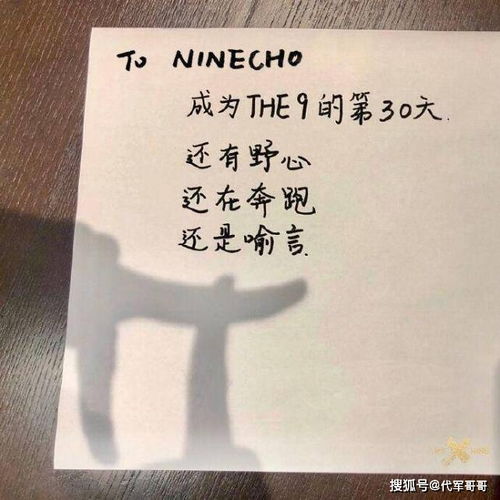 To NINECHO
成为THE9的第30天.
还有野心
还在奔跑
还是喻言.
搜狐号@代军哥哥